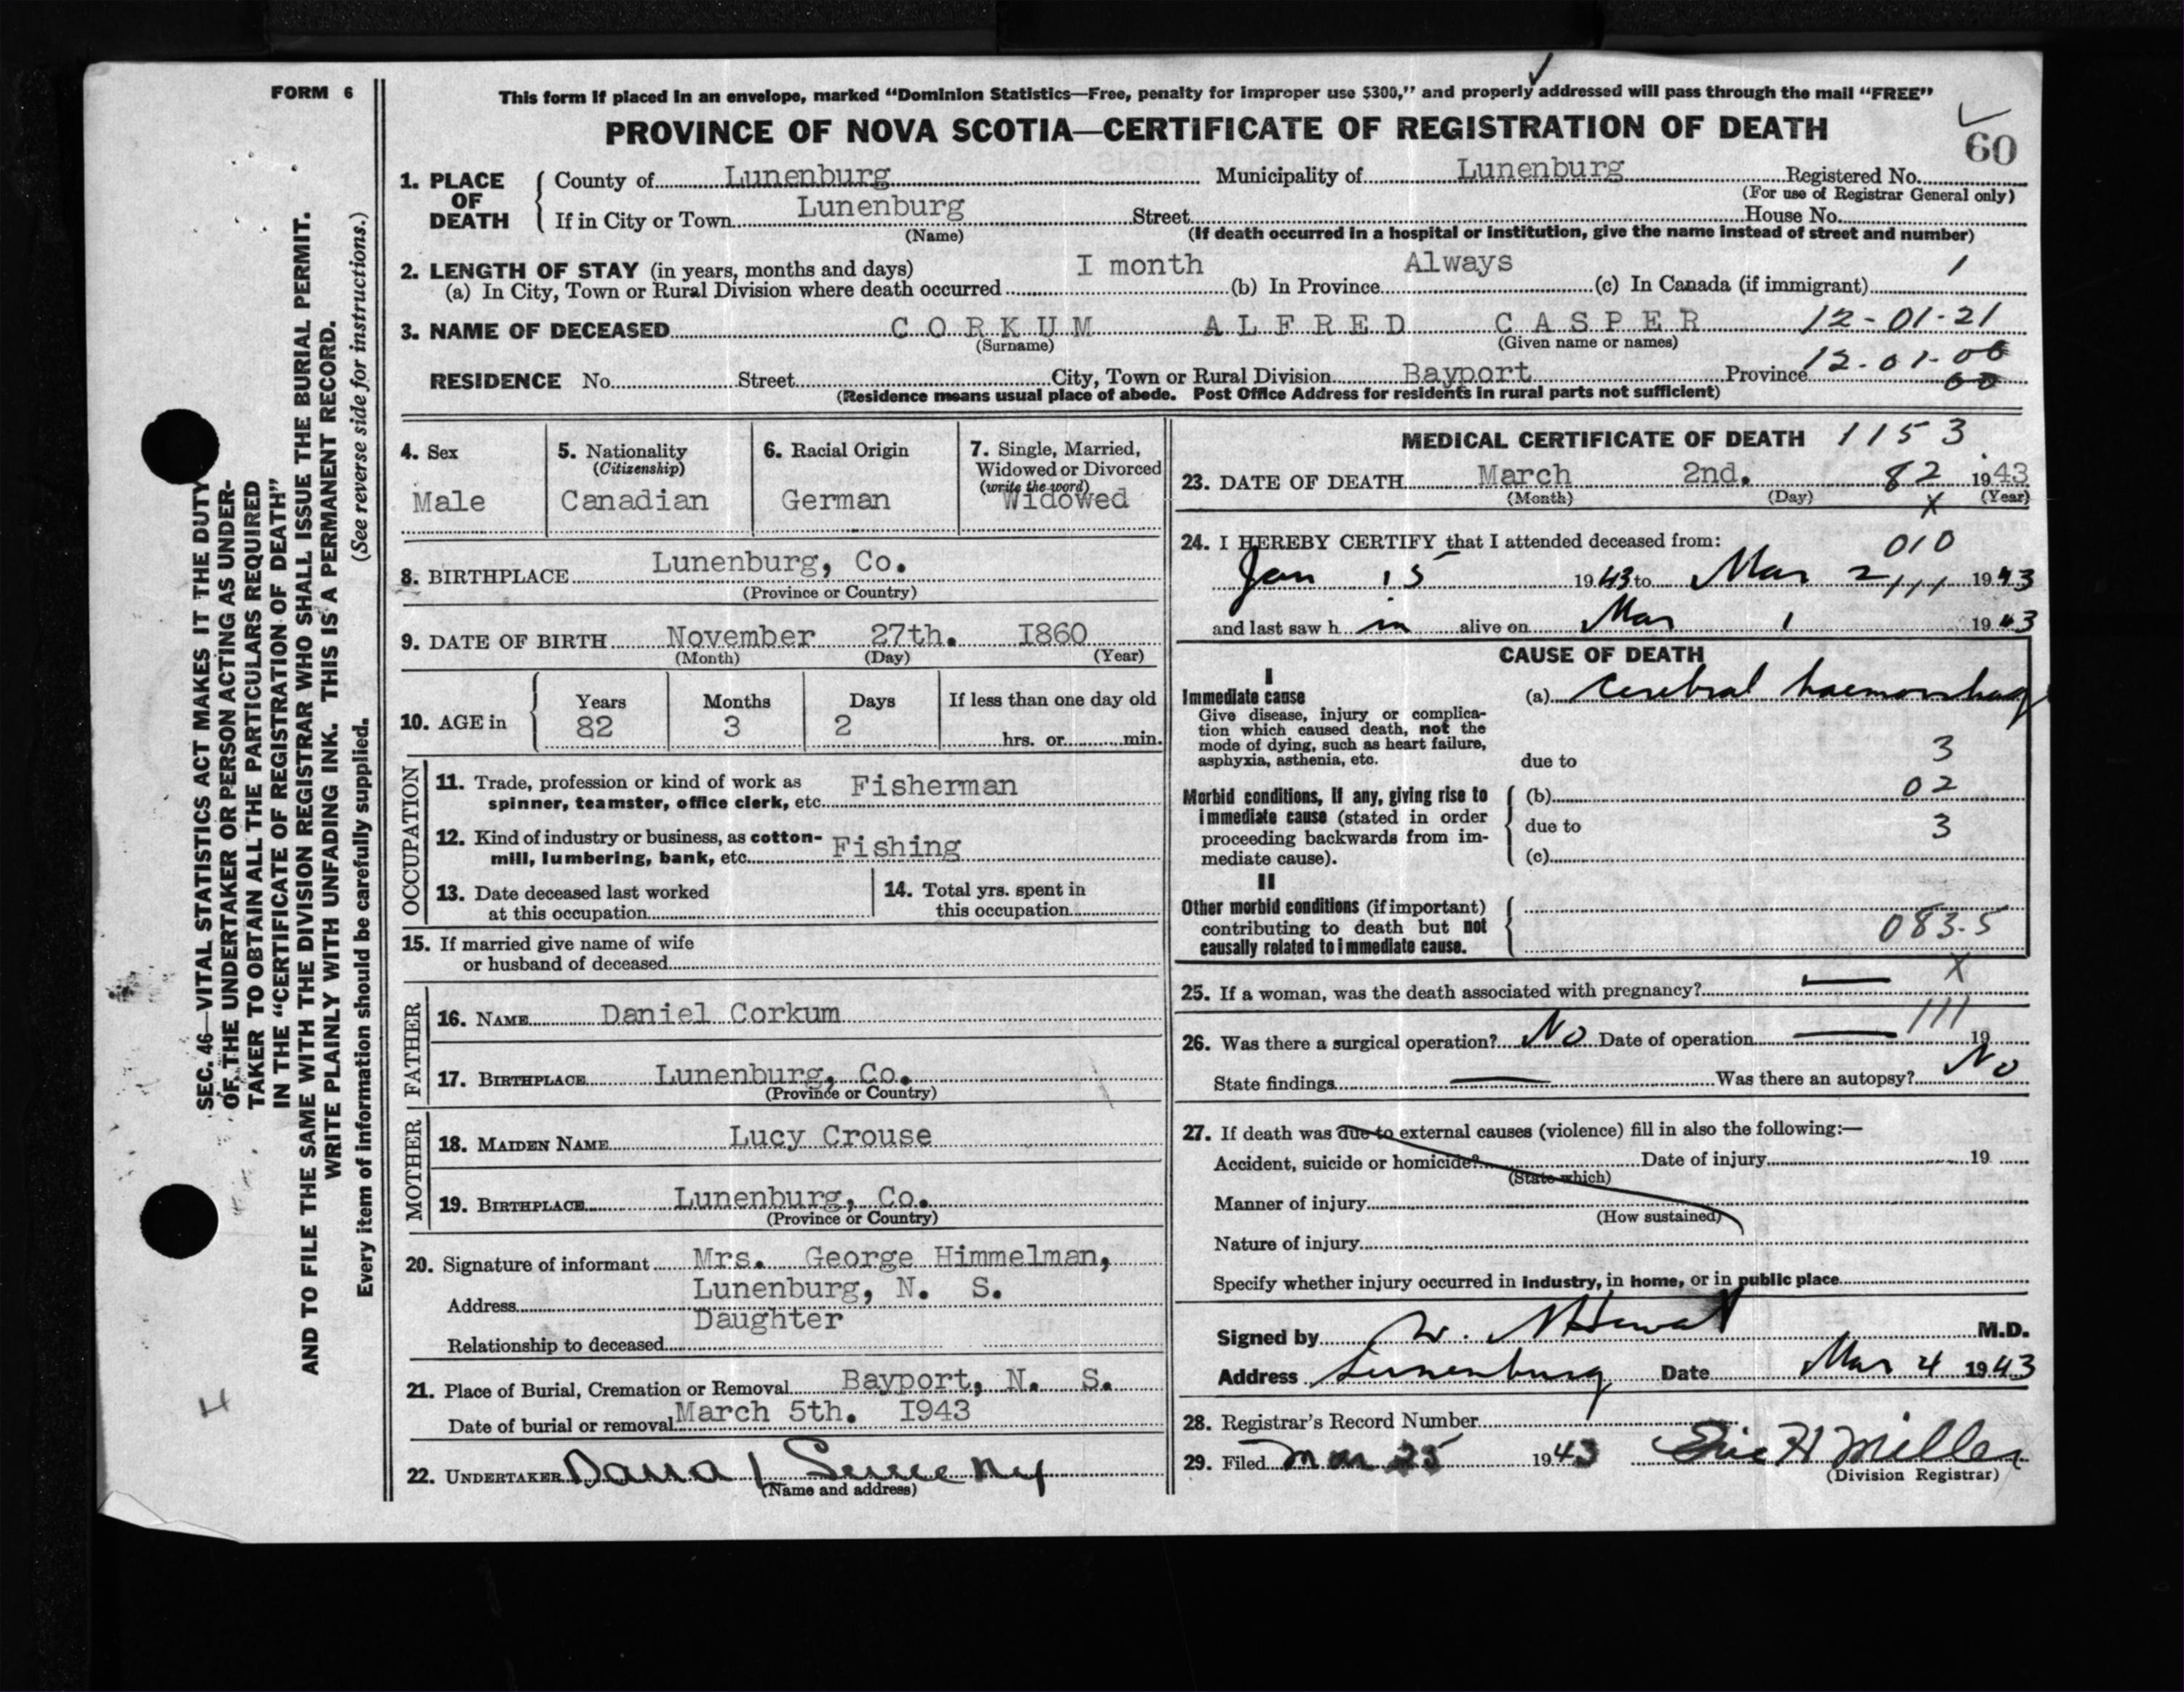 FORM 6
This form if placed in an envelope, marked “Dominion Statistics—Free, penalty for improper use $300,” and properly addressed will pass through the mail “FREE”
PROVINCE OF NOVA SCOTIA—CERTIFICATE OF REGISTRATION OF DEATH
60
1. PLACE OF DEATH
County of Lunenburg Municipality of Lunenburg Registered No.
(For use of Registrar General only)
If in City or Town Lunenburg Street House No.
(Name) (If death occurred in a hospital or institution, give the name instead of street and number)
2. LENGTH OF STAY (in years, months and days)
(a) In City, Town or Rural Division where death occurred I month (b) In Province Always (c) In Canada (if immigrant) 1
3. NAME OF DECEASED CORKUM ALFRED CASPER 12-01-21
(Surname) (Given name or names)
RESIDENCE No. Street City, Town or Rural Division Bayport Province 12-01-00
(Residence means usual place of abode. Post Office Address for residents in rural parts not sufficient)
4. Sex
Male
5. Nationality
(Citizenship)
Canadian
6. Racial Origin
German
7. Single, Married,
Widowed or Divorced
(write the word)
Widowed
8. BIRTHPLACE Lunenburg, Co.
(Province or Country)
9. DATE OF BIRTH November 27th. I860
(Month) (Day) (Year)
10. AGE in
Years Months Days If less than one day old
82 3 2 hrs. or min.
OCCUPATION
11. Trade, profession or kind of work as
spinner, teamster, office clerk, etc. Fisherman
12. Kind of industry or business, as cotton-
mill, lumbering, bank, etc. Fishing
13. Date deceased last worked
at this occupation
14. Total yrs. spent in
this occupation
15. If married give name of wife
or husband of deceased
FATHER
16. NAME Daniel Corkum
17. BIRTHPLACE Lunenburg, Co.
(Province or Country)
MOTHER
18. MAIDEN NAME Lucy Crouse
19. BIRTHPLACE Lunenburg, Co.
(Province or Country)
20. Signature of informant Mrs. George Himmelman,
Address Lunenburg, N. S.
Relationship to deceased Daughter
21. Place of Burial, Cremation or Removal Bayport, N. S.
Date of burial or removal March 5th. I943
22. UNDERTAKER
(Name and address)
MEDICAL CERTIFICATE OF DEATH 1153
23. DATE OF DEATH March 2nd. 82 1943
(Month) (Day) (Year)
X
24. I HEREBY CERTIFY that I attended deceased from:
010
Jan 15 1943 to Mar 2 1943
and last saw h im alive on Mar 1 1943
CAUSE OF DEATH
I
Immediate cause
Give disease, injury or complica-
tion which caused death, not the
mode of dying, such as heart failure,
asphyxia, asthenia, etc.
(a) Cerebral haemorrhag
due to 3
Morbid conditions, if any, giving rise to
immediate cause (stated in order
proceeding backwards from im-
mediate cause).
(b) 02
due to 3
(c)
II
Other morbid conditions (if important)
contributing to death but not
causally related to immediate cause.
083.5
X
25. If a woman, was the death associated with pregnancy? —
111
26. Was there a surgical operation? No Date of operation — 19
State findings — Was there an autopsy? No
27. If death was due to external causes (violence) fill in also the following:—
Accident, suicide or homicide? Date of injury 19
(State which)
Manner of injury
(How sustained)
Nature of injury
Specify whether injury occurred in industry, in home, or in public place
Signed by M.D.
Address Lunenburg Date Mar 4 1943
28. Registrar's Record Number
29. Filed Mar 25 1943 H Miller
(Division Registrar)
SEC. 46—VITAL STATISTICS ACT MAKES IT THE DUTY
OF THE UNDERTAKER OR PERSON ACTING AS UNDER-
TAKER TO OBTAIN ALL THE PARTICULARS REQUIRED
IN THE “CERTIFICATE OF REGISTRATION OF DEATH”
AND TO FILE THE SAME WITH THE DIVISION REGISTRAR WHO SHALL ISSUE THE BURIAL PERMIT.
WRITE PLAINLY WITH UNFADING INK. THIS IS A PERMANENT RECORD.
Every item of information should be carefully supplied. (See reverse side for instructions.)